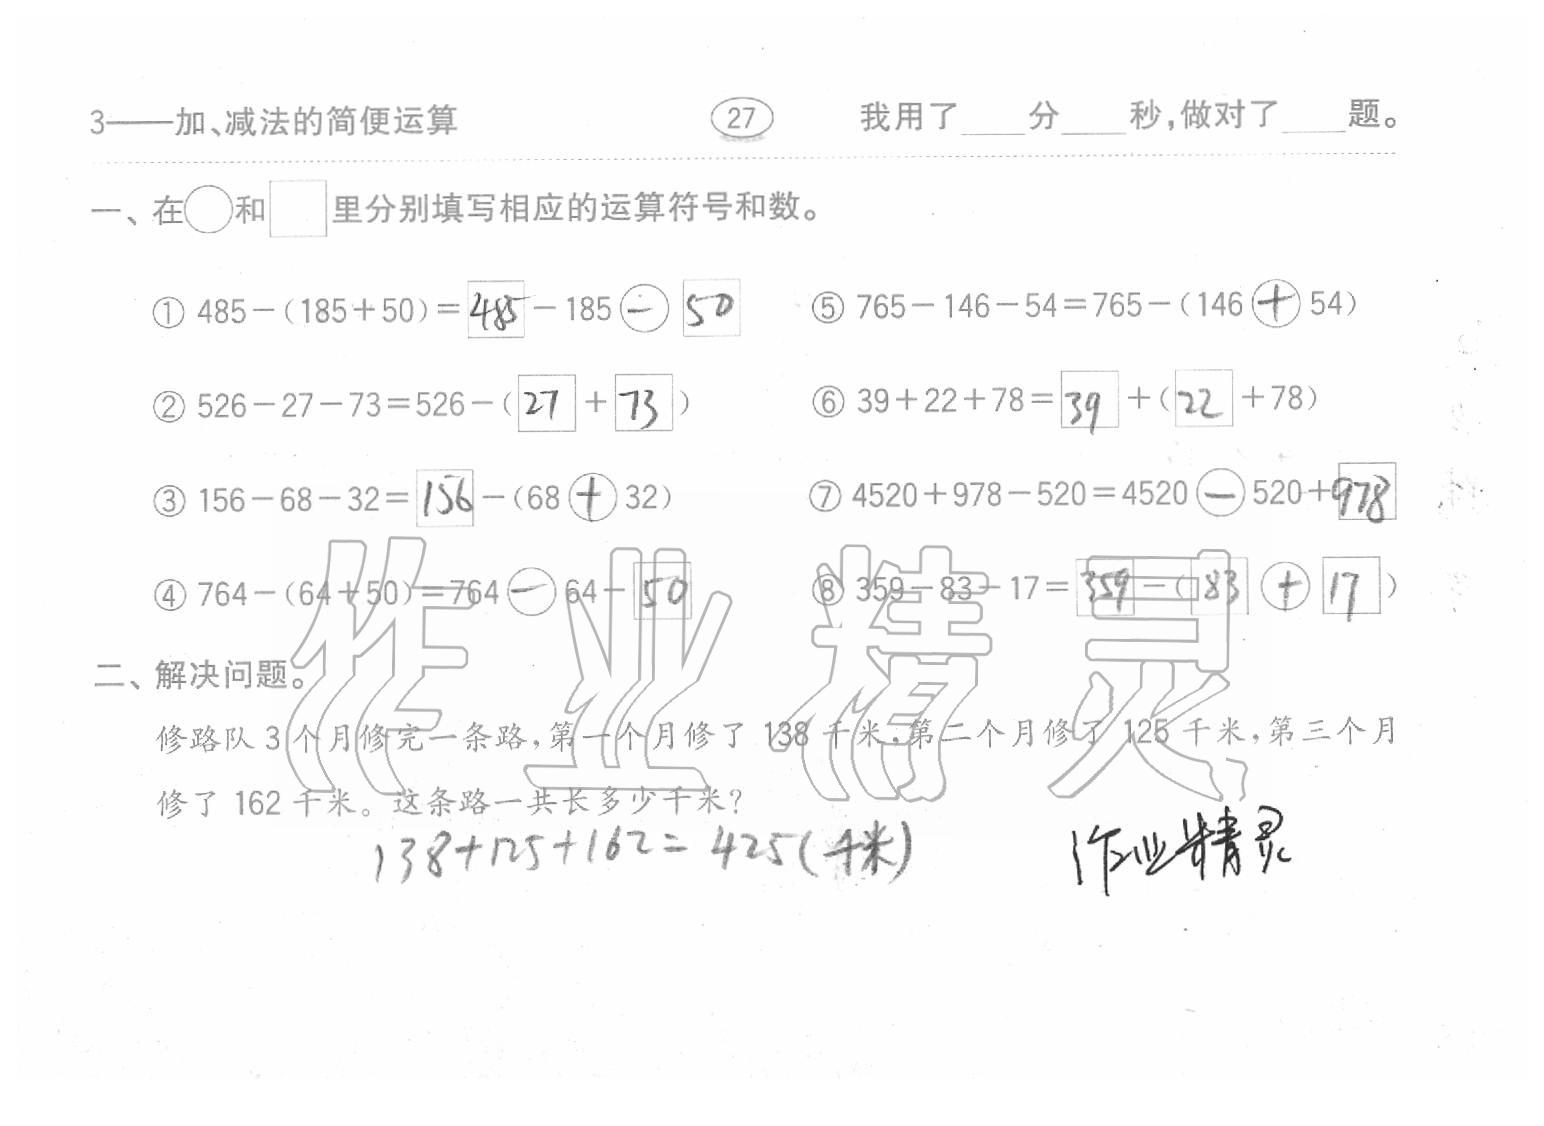 3——加、减法的简便运算 27 我用了____分____秒,做对了____题。
一、在○和□里分别填写相应的运算符号和数。
① 485-(185+50)=485-185-50 ⑤ 765-146-54=765-(146+54)
② 526-27-73=526-(27+73) ⑥ 39+22+78=39+(22+78)
③ 156-68-32=156-(68+32) ⑦ 4520+978-520=4520-520+978
④ 764-(64+50)=764-64-50 ⑧ 359-83-17=359-(83+17)
二、解决问题。
修路队3个月修完一条路,第一个月修了138千米,第二个月修了125千米,第三个月
修了162千米。这条路一共长多少千米?
138+125+162=425(千米)
作业精灵
作业精灵